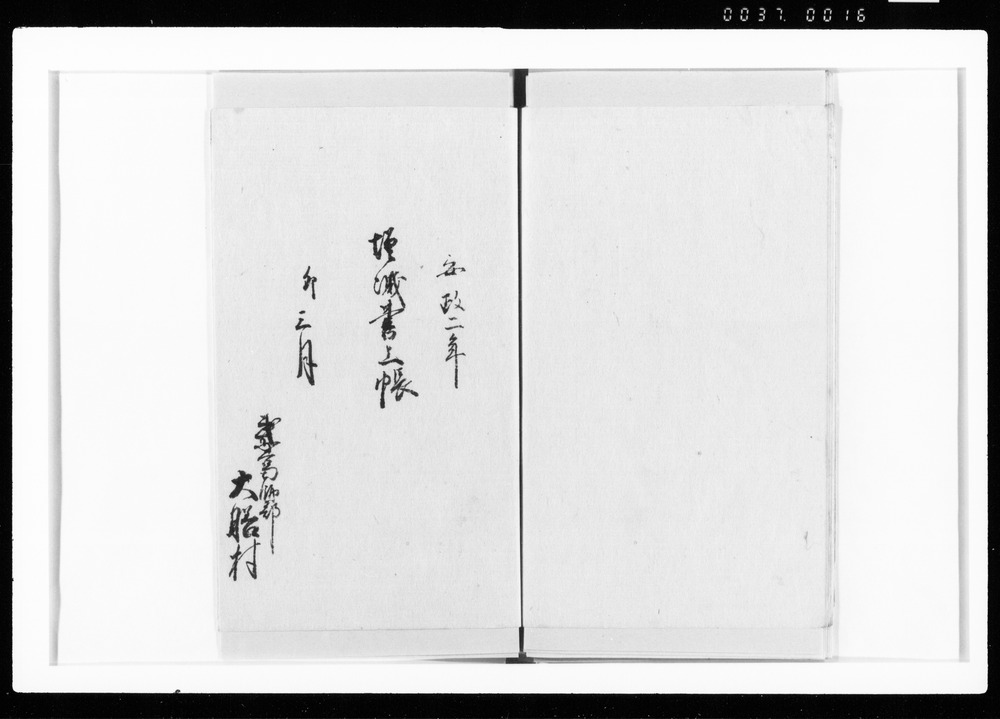 0037. 0016
安政二年
増減書上帳
卯三月
葛飾郡
大膳村